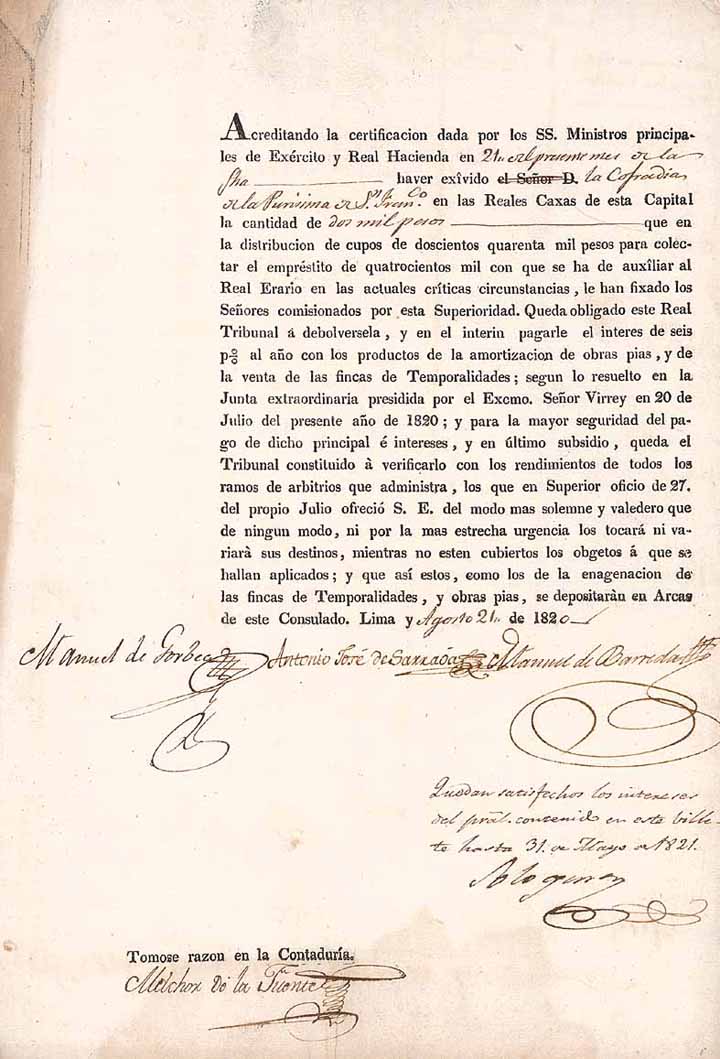 Acreditando la certificacion dada por los SS. Ministros principa-
les de Exército y Real Hacienda en 21,, del presente mes de la
fha haver exîvido el Señor D. la Cofradia
de la Purisima de Sn. Franco. en las Reales Caxas de esta Capital
la cantidad de dos mil pesos que en
la distribucion de cupos de doscientos quarenta mil pesos para colec-
tar el empréstito de quatrocientos mil con que se ha de auxîliar al
Real Erario en las actuales críticas circunstancias, le han fixado los
Señores comisionados por esta Superioridad. Queda obligado este Real
Tribunal á debolversela, y en el interin pagarle el interes de seis
p% al año con los productos de la amortizacion de obras pias, y de
la venta de las fincas de Temporalidades; segun lo resuelto en la
Junta extraordinaria presidida por el Excmo. Señor Virrey en 20 de
Julio del presente año de 1820; y para la mayor seguridad del pa-
go de dicho principal é intereses, y en último subsidio, queda el
Tribunal constituido à verificarlo con los rendimientos de todos los
ramos de arbitrios que administra, los que en Superior oficio de 27.
del propio Julio ofreció S. E. del modo mas solemne y valedero que
de ningun modo, ni por la mas estrecha urgencia los tocará ni va-
riarà sus destinos, mientras no esten cubiertos los obgetos á que se
hallan aplicados; y que así estos, como los de la enagenacion de
las fincas de Temporalidades, y obras pias, se depositaràn en Arcas
de este Consulado. Lima y Agosto 21,, de 1820
Manuel de Gorbea Antonio José de Sarraoa Manuel de Barreda
Quedan satisfechos los intereses
del pral. contenido en este bille-
te hasta 31. de Mayo de 1821.
Tomose razon en la Contaduría.
Melchor de la Fuente